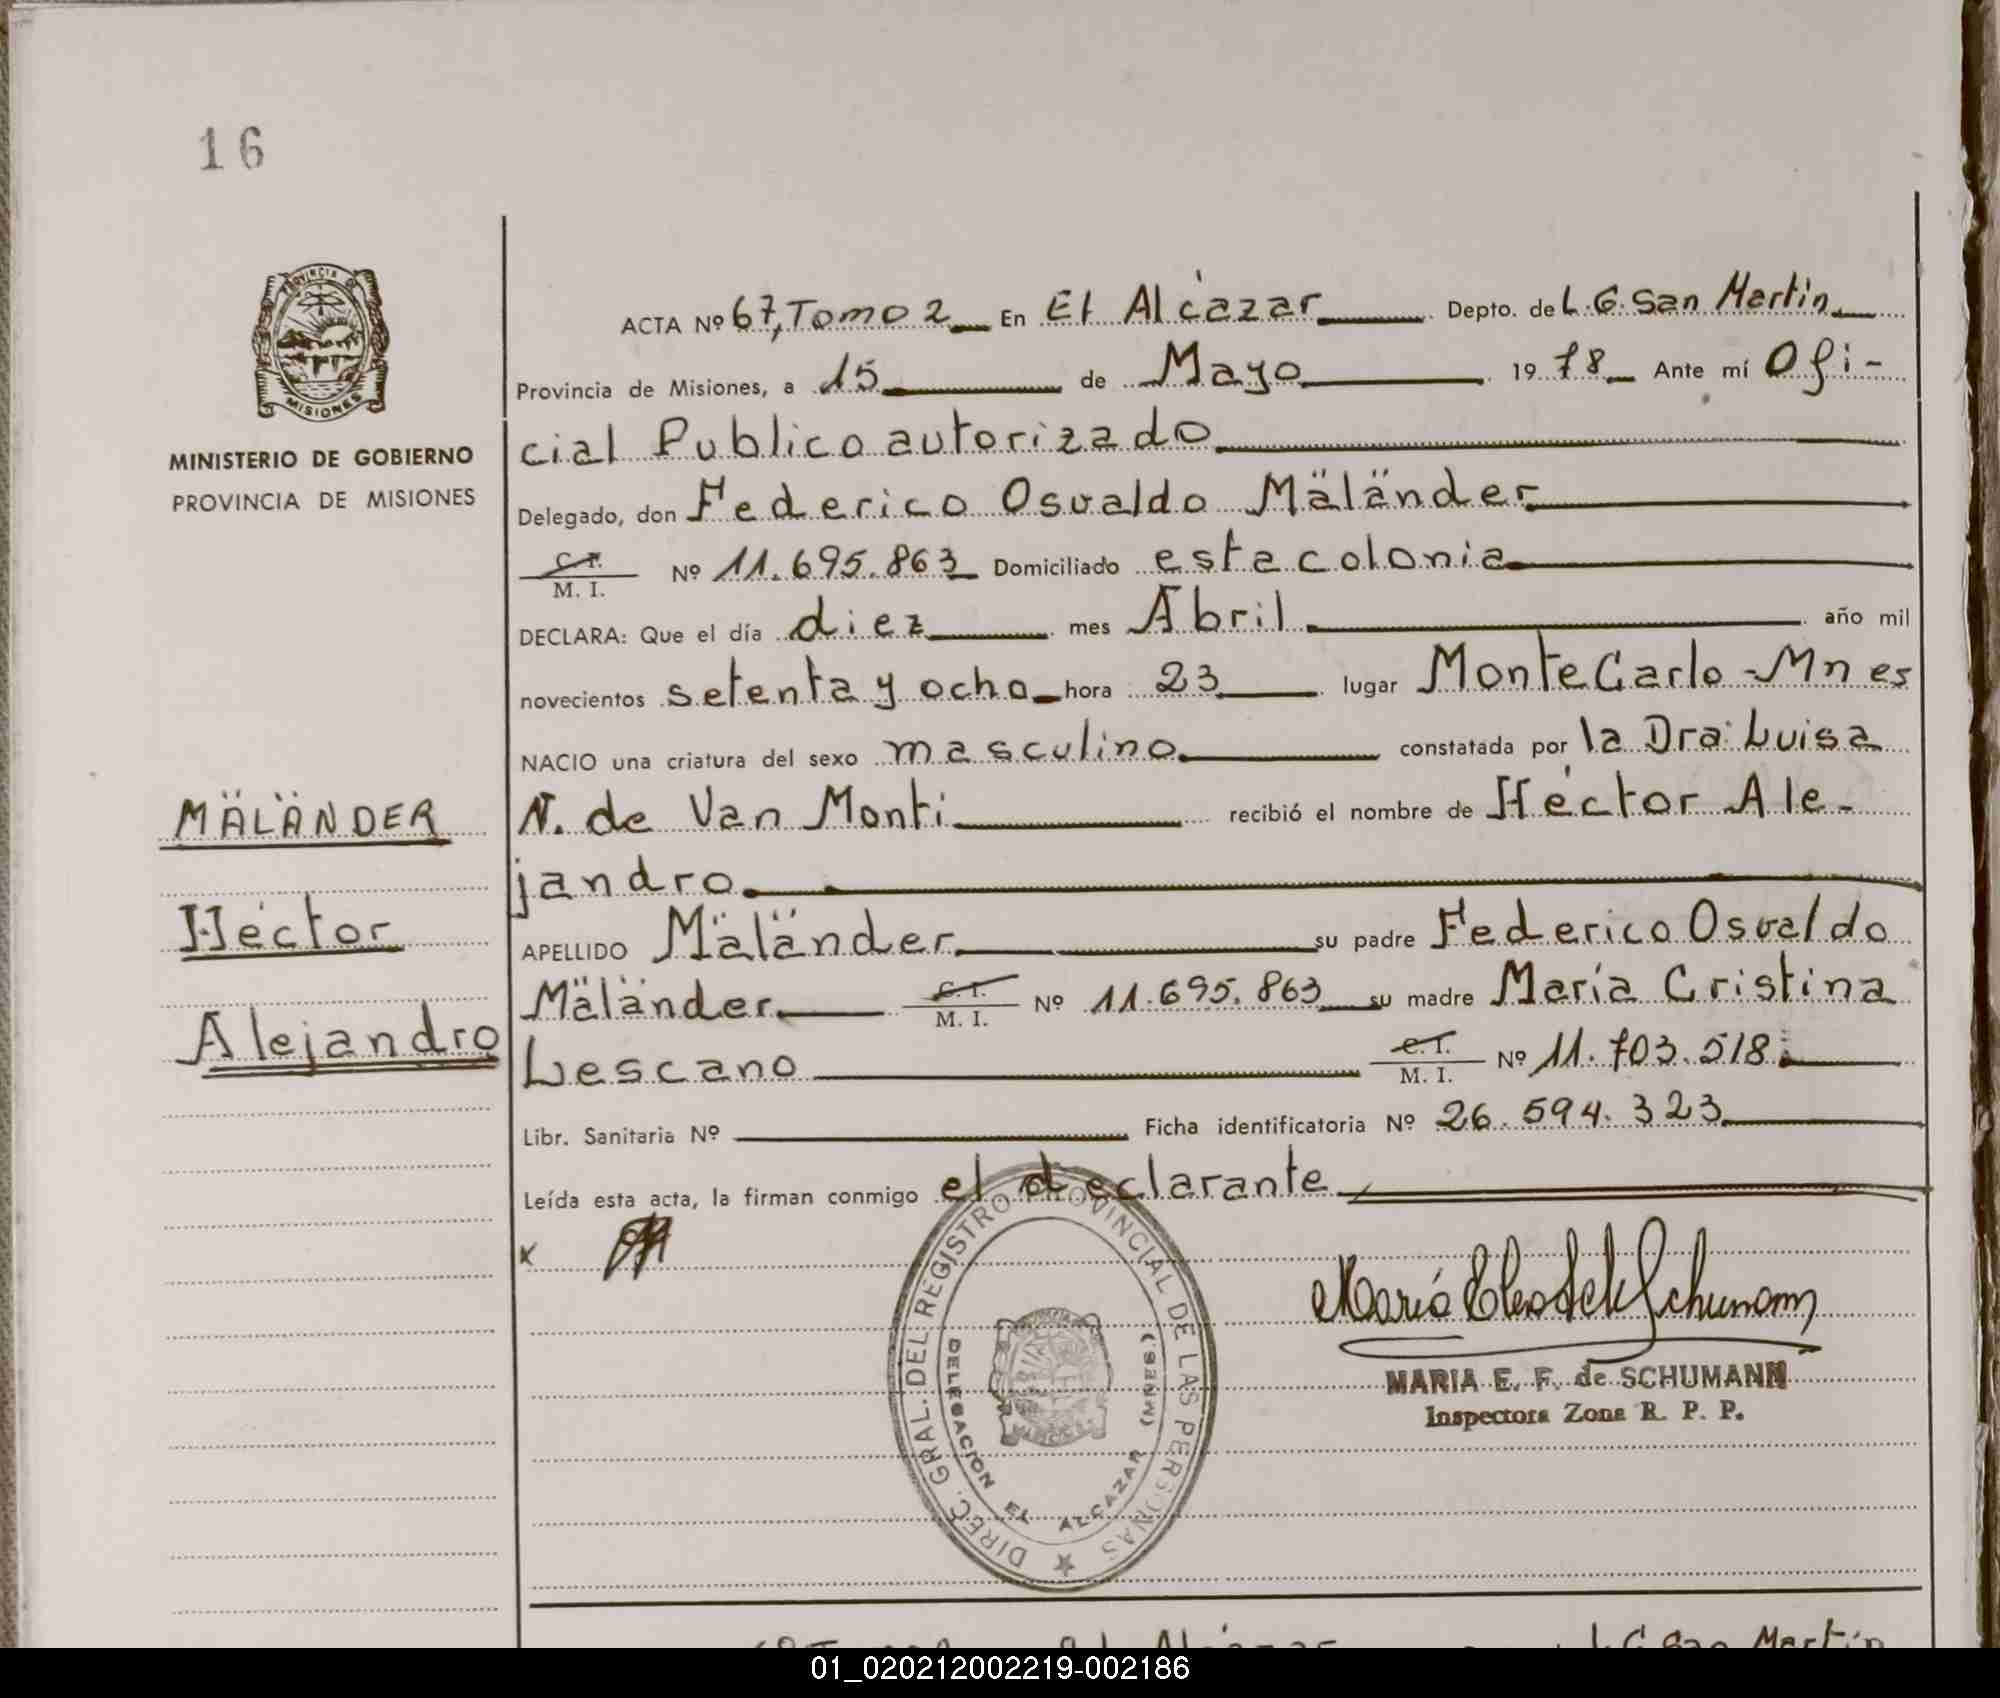 16
PROVINCIA DE
MISIONES
MINISTERIO DE GOBIERNO
PROVINCIA DE MISIONES
MÄLÄNDER
Héctor
Alejandro
ACTA Nº 67, Tomo 2 En El Alcázar Depto. de L. G. San Martín
Provincia de Misiones, a 15 de Mayo 1978 Ante mí Ofi-
cial Publico autorizado
Delegado, don Federico Osvaldo Mäländer
C. I.
M. I. Nº 11.695.863 Domiciliado esta colonia
DECLARA: Que el día diez mes Abril año mil
novecientos setenta y ocho hora 23 lugar Monte Carlo - Mnes
NACIO una criatura del sexo masculino constatada por la Dra. Luisa
N. de Van Monti recibió el nombre de Héctor Ale-
jandro
APELLIDO Mäländer su padre Federico Osvaldo
Mäländer C. I.
M. I. Nº 11.695.863 su madre María Cristina
Lescano C. I.
M. I. Nº 11.703.518
Libr. Sanitaria Nº Ficha identificatoria Nº 26.594.323
Leída esta acta, la firman conmigo el declarante
x
DIREC. GRAL. DEL REGISTRO PROVINCIAL DE LAS PERSONAS
DELEGACION EL ALCAZAR (MNES.)
MARIA E. F. de SCHUMANN
Inspectora Zona R. P. P.
01_020212002219-002186